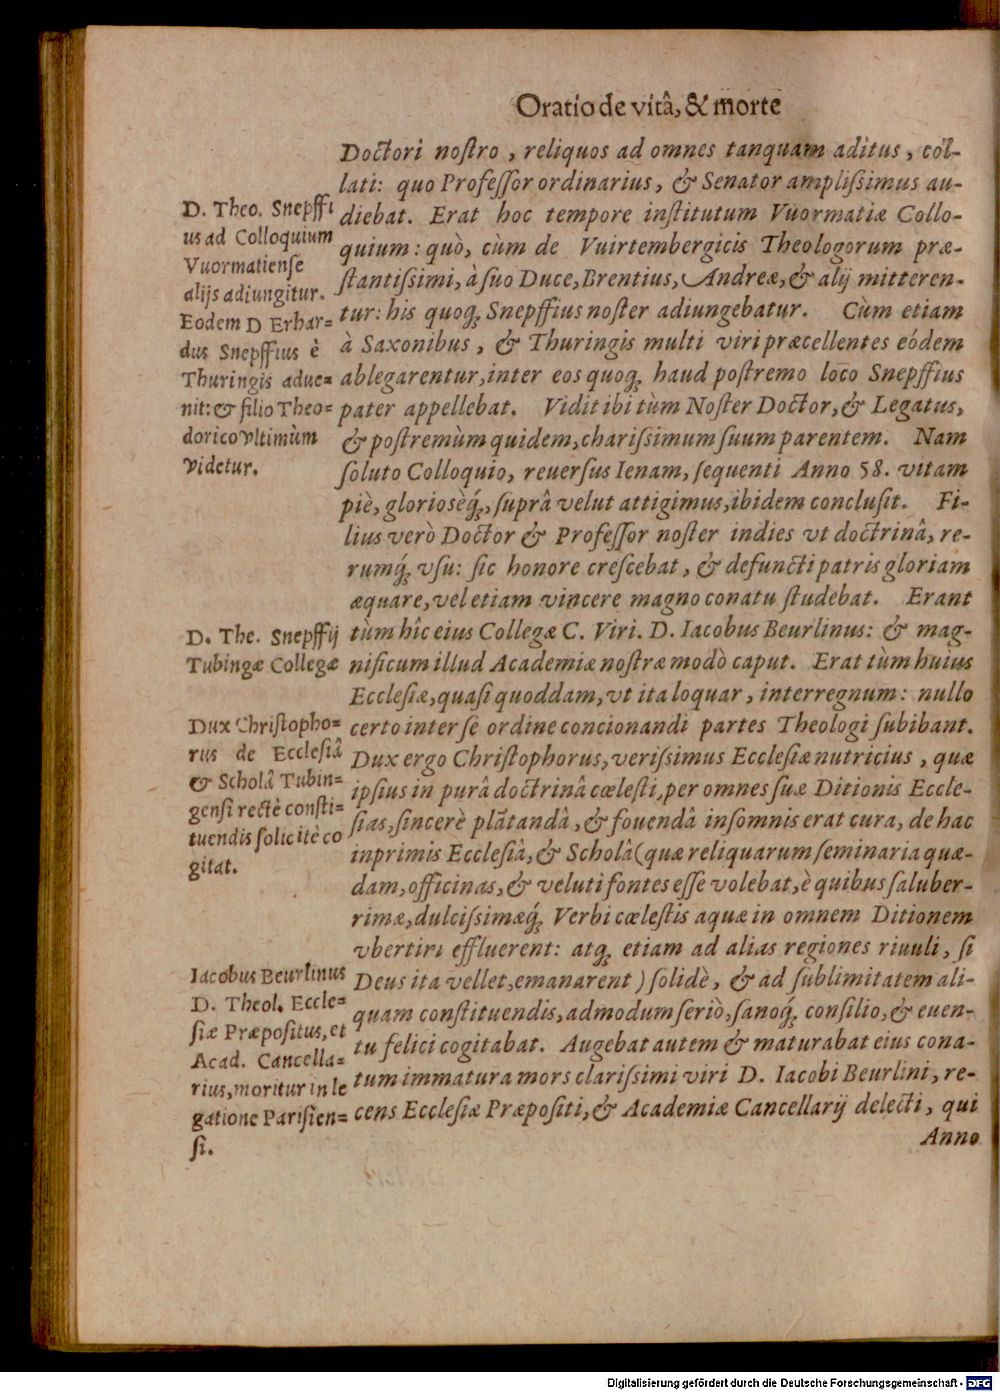 Oratio de vitâ, & morte
Doctori noſtro, reliquos ad omnes tanquam aditus, col-
lati: quo Profeſſor ordinarius, & Senator ampliſsimus au-
diebat. Erat hoc tempore inſtitutum Vuormatiæ Collo-
quium: quò, cùm de Vuirtembergicis Theologorum præ-
ſtantiſsimi, à ſuo Duce, Brentius, Andreæ, & alij mitteren-
tur: his quoq́; Snepffius noſter adiungebatur. Cùm etiam
à Saxonibus, & Thuringis multi viri præcellentes eódem
ablegarentur, inter eos quoq́; haud poſtremo loco Snepffius
pater appellebat. Vidit ibi tùm Noſter Doctor, & Legatus,
& poſtremùm quidem, chariſsimum ſuum parentem. Nam
ſoluto Colloquio, reuerſus Ienam, ſequenti Anno 58. vitam
piè, glorioséq́;, ſuprâ velut attigimus, ibidem concluſit. Fi-
lius verò Doctor & Profeſſor noſter indies vt doctrinâ, re-
rumq́; vſu: ſic honore creſcebat, & defuncti patris gloriam
æquare, vel etiam vincere magno conatu ſtudebat. Erant
tùm hîc eius Collegæ C. Viri. D. Iacobus Beurlinus: & mag-
nificum illud Academiæ noſtræ modò caput. Erat tùm huius
Eccleſiæ, quaſi quoddam, vt ita loquar, interregnum: nullo
certo inter ſe ordine concionandi partes Theologi ſubibant.
Dux ergo Chriſtophorus, veriſsimus Eccleſiæ nutricius, quæ
ipſius in purâ doctrinâ cœleſti, per omnes ſuæ Ditionis Eccle-
ſias, ſincerè plātandâ, & fouendâ inſomnis erat cura, de hac
inprimis Eccleſiâ, & Scholâ (quæ reliquarum ſeminaria quæ-
dam, officinas, & veluti fontes eſſe volebat, è quibus ſaluber-
rimæ, dulciſsimæq́; Verbi cœleſtis aquæ in omnem Ditionem
vbertim effluerent: atq́; etiam ad alias regiones riuuli, ſi
Deus ita vellet, emanarent) ſolidè, & ad ſublimitatem ali-
quam conſtituendis, admodum ſeriò, ſanoq́; conſilio, & euen-
tu felici cogitabat. Augebat autem & maturabat eius cona-
tum immatura mors clariſsimi viri D. Iacobi Beurlini, re-
cens Eccleſiæ Præpoſiti, & Academiæ Cancellarij delecti, qui
Anno
D. Theo. Snepffi
us ad Colloquium
Vuormatienſe
alijs adiungitur.
Eodem D Erhar=
dus Snepffius è
Thuringis adue=
nit: & filio Theo=
dorico vltimùm
videtur.
D. The. Snepffij
Tubingæ Collegæ
Dux Chriſtopho=
rus de Eccleſiâ
& Scholâ Tubin=
genſi rectè conſti=
tuendis ſolicitè co
gitat.
Iacobus Beurlinus
D. Theol. Eccle=
ſiæ Præpoſitus, et
Acad. Cancella=
rius, moritur in le
gatione Pariſien=
ſi.
Digitalisierung gefördert durch die Deutsche Forschungsgemeinschaft - DFG